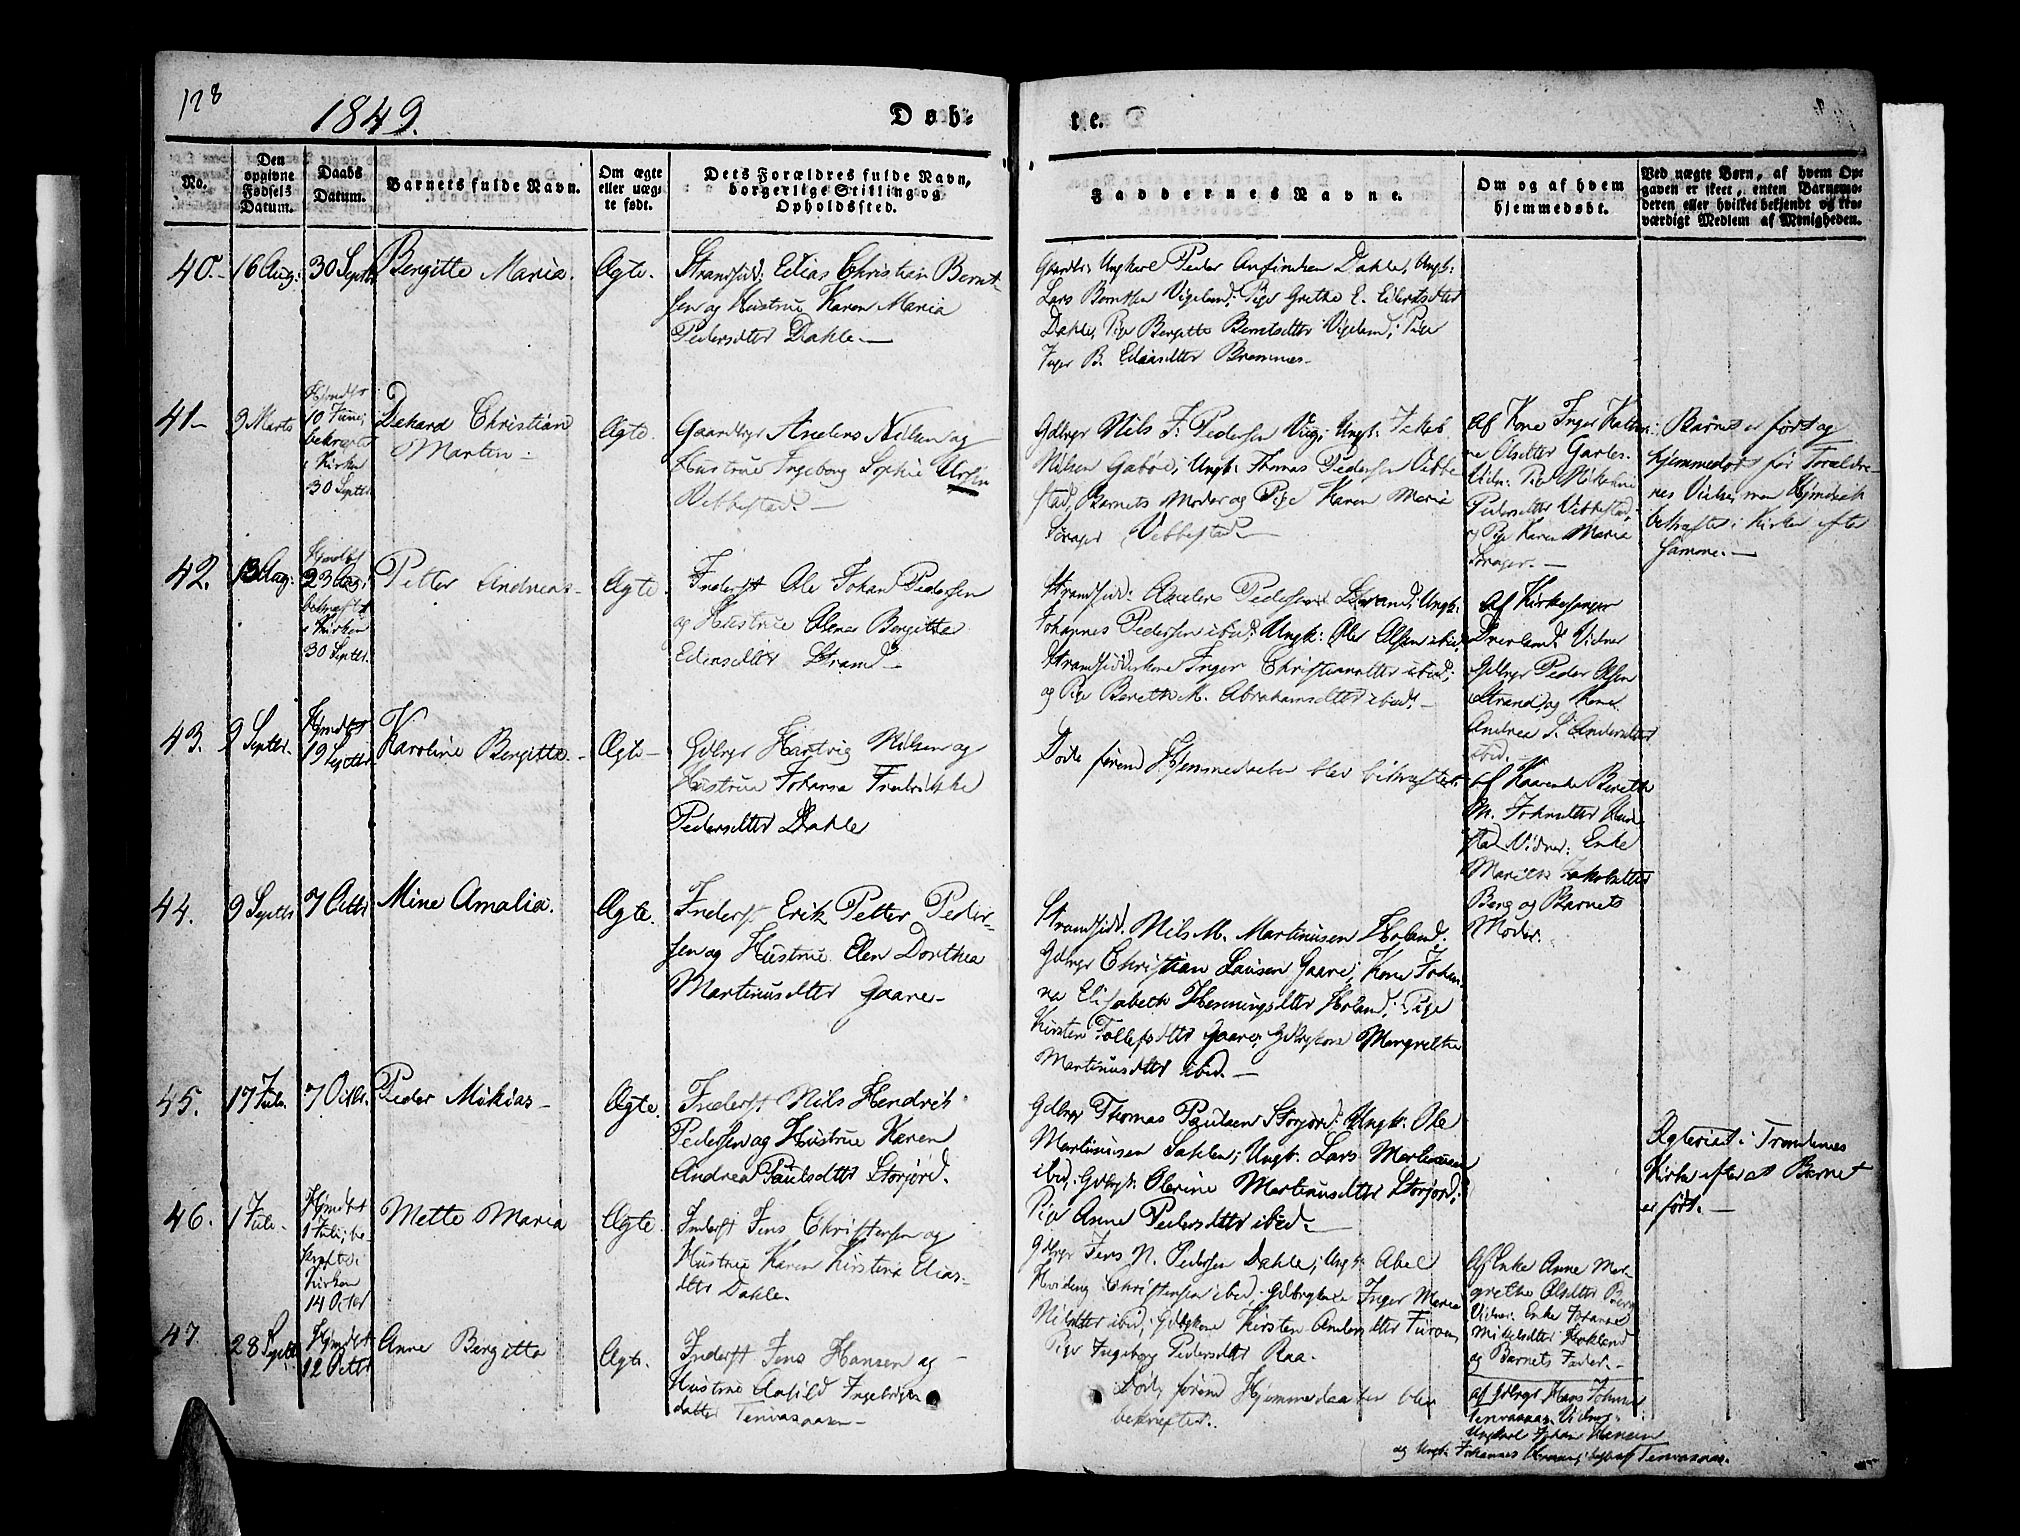 128
1849.
Døb-
te.
No.
Den
opgivne
Fødsels
Datum.
Daabs
Datum.
Barnets fulde Navn.
Om ægte
eller uæg-
te født.
Dets Forældres fulde Navn,
borgerlige Stilling og
Opholdssted.
Faddernes Navne.
Om og af hvem
hjemmedøbt.
Ved uægte Børn, af hvem Op-
gaven er skeet, enten Barnemo-
deren eller hvilket bekjendt og tro-
værdigt Medlem af Menigheden.
40.-
16 Aug:
30 Septbr
Bergitte Maria.
Ægte.
Strandsid: Elias Christian Bernt-
sen og Hustrue Karen Maria
Pedersdtter Dahle.
Gaardbr: Ungkarl Peder Anfindsen Dahle, Ungk:
Lars Berntsen Vigeland; Pige Grethe E. Edisdtter
Dahle, Pige Bergitte Berntsdtter Vigeland; Pige
Inger B. Eliasdtter Bremnes.
41-
3 Marts
Hjmdbt
10 Juni;
bekræftet
i Kirken
30 Septbr
Dehard Christian
Martin.
Ægte.
Gaardbrgr Anders Nilsen og
Hustrue Ingeborg Sophie Ursin
Vebbestad.
Gdbrgr Nils J. Pedersen Vig; Ungk: Jakob
Nilsen Gaboe; Ungk: Thomas Pedersen Vebbe
stad, Barnets Moder og Pige Karen Maria
Vebbestad.
Af Kone Inger Kathri-
ne Olsdtter Garles.
Vidn: Pige Mikeline
Pedersdtter Vebbestad,
og Pige Karen Maria
Barnet er født og
hjemmedøbt før Forældre-
nes Vielse, men Hjmdaab
bekræftet i Kirken efter
samme.
42.
13 Aug:
Hjmdbt
23 Aug;
bekræftet
i Kirken
30 Septbr.
Petter Andreas-
Ægte.
Inderst Ole Johan Pedersen
og Hustrue Elena Bergitte
Eliasdtter Strand
Strandsid: Anders Pedersen Strand; Ungk:
Johannes Pedersen ibid; Ungk: Ole Olsen ibid;
Strandsidderkone Inger Christiansdtter ibid;
og Pige Bereth M. Abrahamsdtter ibid.
Af Kirkesanger
Vidner
Gdbrgr Peder Olsen
Strand, og Kone
Andrea S. Andersdtter
ibid.
43.
9 Septbr.
Hjmdbt
19 Septbr
Karoline Bergitte.
Ægte
Gdbrgr Hartvig Nilsen og
Hustrue Johanna Fredrikke
Pedersdtter Dahle
Døde førend Hjemmedaaben blev bekræftet.
af Kaarende Bereth
M. Johnsdtter Kun
stad. Vidner: Enke
Mareth Jakobsdtter
Berg og Barnets
Moder.
44.
9 Septbr
7 Octbr
Mine Amalia.
Ægte.
Inderst Erik Petter Peder-
sen og Hustrue Elen Dorthea
Martinusdtter Gaare-
Strandsid: Nils M. Martinusen Holand;
Gdbrgr Christian Lausen Gaare; Kone Johan-
na Elisabeth Henningsdtter Holand; Pige
Kirsten Tollefsdtter Gaare; Gdbrgkone Margrethe
Martinusdtter ibid.
45.
17 Juli.
7 Octbr.
Peder Mikias
Ægte.
Inderst Nils Hendrik
Pedersen og Hustrue Karen
Andrea Paulsdtter Storjord.
Gdbrgr Thomas Paulsen Storjord; Ungk: Ole
Martinusen Sahlen; Ungk: Lars Martinusen
ibid; Gdbrgk: Olerine Martinusdtter Storjord;
Pige Anne Pedersdtter ibid.
Ægteviet i Trondenes
Kirke efter at Barnet
er født.
46.
1 Juli.
Hjmdbt
1 Juli; be-
kræftet i
Kirken
14 Octbr
Mette Maria
Ægte.
Inderst Jens Christensen og
Hustrue Karen Kirstena Elias-
dtter Dahle.
Gdbrgr Jens N. Pedersen Dahle; Ungk: Abel
Christensen ibid; Gdbrgkone Inger Maria
Nilsdtter ibid; Gdbrgkone Kirsten Andersdtter
Pige Ingeborg Pedersdtter Raa.
Af Enke Anne Mar-
grethe Olsdtter Berg
Vidner: Enke Johanna
Mikelsdtter Hokland
og Barnets Fader.
47
28 Septbr.
Hjmdbt
12 Octbr
Anne Bergitte
Ægte.
Inderst Jens Hansen og
Hustrue Ingebrigts
datter Tenvasaasen
Døde førend Hjemmedaaben blev
bekræftet.
af Gdbrgr Hans Johns
Tenvasaas. Vidner
Ungkarl Johan Hansen
og Ungk: Johannes begge af Tenvasaas.